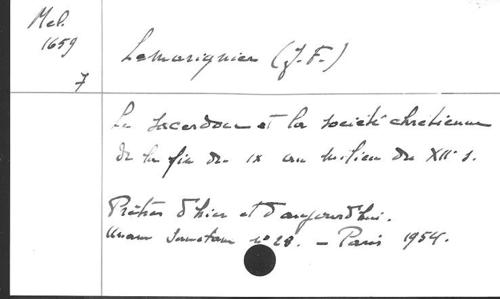 Mel.
1659
7
Lemarignier (J.-F.)
Le sacerdoce et la société chrétienne
de la fin du IX au milieu du XII s.
Prêtres d'hier et d'aujourd'hui.
Unam Sanctam n° 28. - Paris 1954.